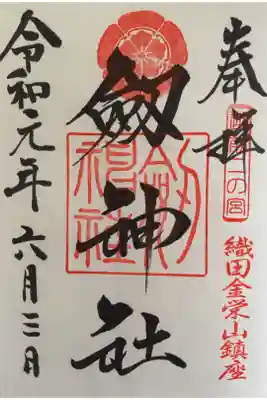 奉拝
二の宮
織田金栄山鎮座
劔神社
劔神社
令和元年六月三日